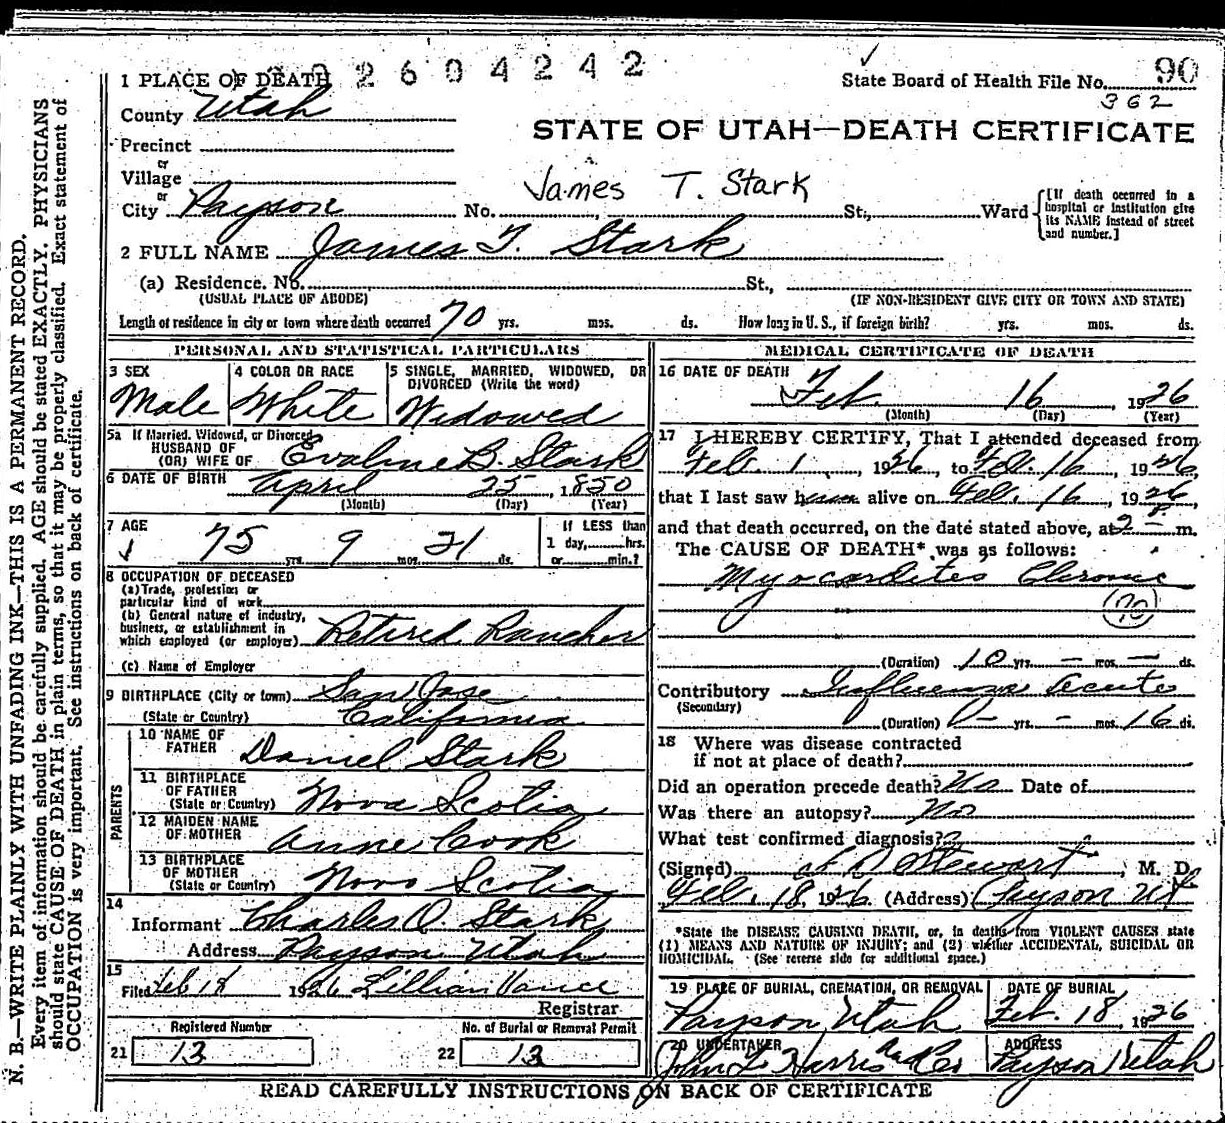 2604242
1 PLACE OF DEATH
State Board of Health File No. 90
362
County Utah
STATE OF UTAH—DEATH CERTIFICATE
Precinct
or
Village
or
James T. Stark
City Payson No. St., Ward
[If death occurred in a hospital or institution give its NAME instead of street and number.]
2 FULL NAME James T. Stark
(a) Residence. No. St.,
(USUAL PLACE OF ABODE) (IF NON-RESIDENT GIVE CITY OR TOWN AND STATE)
Length of residence in city or town where death occurred 70 yrs. mos. ds. How long in U. S., if foreign birth? yrs. mos. ds.
PERSONAL AND STATISTICAL PARTICULARS
3 SEX
Male
4 COLOR OR RACE
White
5 SINGLE, MARRIED, WIDOWED, OR
DIVORCED (Write the word)
Widowed
5a If Married, Widowed, or Divorced
HUSBAND OF
(OR) WIFE OF Evaline B. Stark
6 DATE OF BIRTH April 25, 1850
(Month) (Day) (Year)
7 AGE
75 yrs. 9 mos. 21 ds.
If LESS than
1 day, hrs.
or min.?
8 OCCUPATION OF DECEASED
(a) Trade, profession or
particular kind of work
(b) General nature of industry,
business, or establishment in
which employed (or employer) Retired Rancher
(c) Name of Employer
9 BIRTHPLACE (City or town) San Jose
(State or Country) California
PARENTS
10 NAME OF
FATHER Daniel Stark
11 BIRTHPLACE
OF FATHER
(State or Country) Nova Scotia
12 MAIDEN NAME
OF MOTHER Anne Cook
13 BIRTHPLACE
OF MOTHER
(State or Country) Nova Scotia
14
Informant Charles O. Stark
Address Payson Utah
15
Filed Feb 18 1926 Lillian Vance
Registrar
Registered Number
21 13
No. of Burial or Removal Permit
22 13
MEDICAL CERTIFICATE OF DEATH
16 DATE OF DEATH
Feb 16, 1926
(Month) (Day) (Year)
17 I HEREBY CERTIFY, That I attended deceased from
Feb. 1, 1926, to Feb. 16, 1926,
that I last saw h alive on Feb. 16, 1926
and that death occurred, on the date stated above, at 2 P m.
The CAUSE OF DEATH* was as follows:
Myocardites Chronic
(Duration) 10 yrs. – mos. – ds.
Contributory Influenza Acute
(Secondary)
(Duration) 0 – yrs. – mos. 16 ds.
18 Where was disease contracted
if not at place of death?
Did an operation precede death? No Date of
Was there an autopsy? No
What test confirmed diagnosis?
(Signed) Stewart, M. D.
Feb. 18, 1926. (Address) Payson Ut
*State the DISEASE CAUSING DEATH, or, in deaths from VIOLENT CAUSES state
(1) MEANS AND NATURE OF INJURY; and (2) whether ACCIDENTAL, SUICIDAL OR
HOMICIDAL. (See reverse side for additional space.)
19 PLACE OF BURIAL, CREMATION, OR REMOVAL
Payson, Utah
DATE OF BURIAL
Feb. 18, 1926
20 UNDERTAKER
John L. Harris and Co
ADDRESS
Payson Utah
READ CAREFULLY INSTRUCTIONS ON BACK OF CERTIFICATE
N. B.—WRITE PLAINLY WITH UNFADING INK—THIS IS A PERMANENT RECORD.
Every item of information should be carefully supplied. AGE should be stated EXACTLY. PHYSICIANS
should state CAUSE OF DEATH in plain terms, so that it may be properly classified. Exact statement of
OCCUPATION is very important. See instructions on back of certificate.